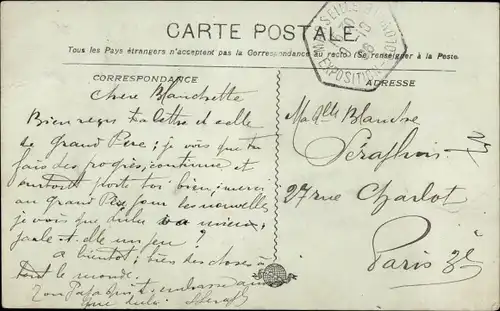 CARTE POSTALE
Tous les Pays étrangers n'acceptent pas la Correspondance au recto (Se renseigner à la Poste
CORRESPONDANCE
ADRESSE
MARSEILLE EXPOSITION
Chère Blanchette
Bien reçu ta lettre et celle
de Grand Père ; je vois que tu
fais des progrès, continue et
surtout porte toi bien ; merci
au grand Père pour les nouvelles
je vois que Lulu va mieux ;
parle-t-elle un peu ?
à bientôt ; bien des choses à
tout le monde.
Ton Papa qui t'embrasse ainsi
que Lulu
Melle Blanche
Séraphin
27 rue Charlot
Paris 3e